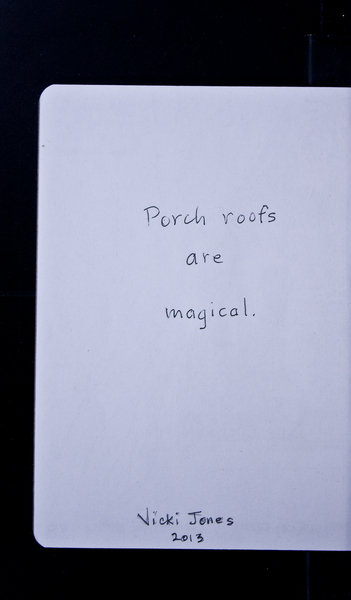 Porch roofs
are
magical.
Vicki Jones
2013